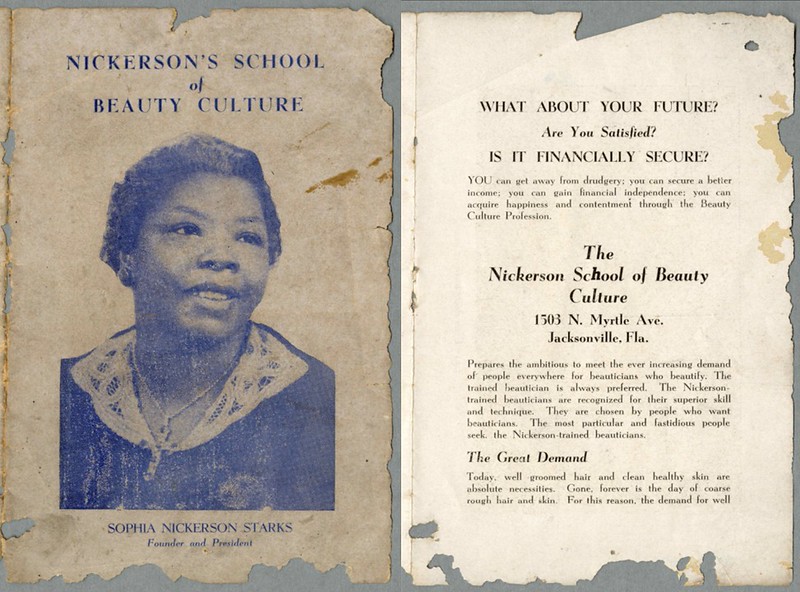 NICKERSON'S SCHOOL
of
BEAUTY CULTURE
SOPHIA NICKERSON STARKS
Founder and President
WHAT ABOUT YOUR FUTURE?
Are You Satisfied?
IS IT FINANCIALLY SECURE?
YOU can get away from drudgery; you can secure a better
income; you can gain financial independence; you can
acquire happiness and contentment through the Beauty
Culture Profession.
The
Nickerson School of Beauty
Culture
1503 N. Myrtle Ave.
Jacksonville, Fla.
Prepares the ambitious to meet the ever increasing demand
of people everywhere for beauticians who beautify. The
trained beautician is always preferred. The Nickerson-
trained beauticians are recognized for their superior skill
and technique. They are chosen by people who want
beauticians. The most particular and fastidious people
seek. the Nickerson-trained beauticians.
The Great Demand
Today, well groomed hair and clean healthy skin are
absolute necessities. Gone, forever is the day of coarse
rough hair and skin. For this reason, the demand for well